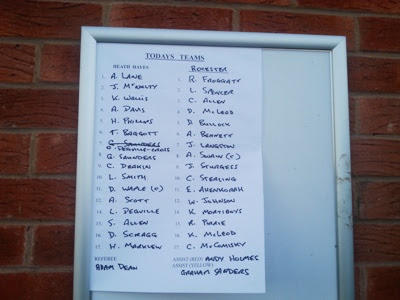 TODAYS TEAMS
HEATH HAYES
1. A. LANE
2. J. McNULTY
3. K. WALLIS
4. A. DAVIS
5. H. PHILLIPS
6. T. BAGGOTT
7. C. SAUNDERS
8. G. SAUNDERS
9. C. DEAKIN
10. L. SMITH
11. D. WAPLE (C)
12. A. SCOTT
14. L. DEGVILLE
15. S. ALLEN
16. D. SCRAGG
17. H. MARKLEW
REFEREE
ADAM DEAN
ROCESTER
1. R. FROGGATT
2. L. SPENCER
3. C. ALLEN
4. D. McLEOD
5. D. BULLOCK
6. A. BENNETT
7. J. LANGSTON
8. A. SWAIN (C)
9. J. STURGESS
10. C. STERLING
11. E. AHENKORAH
12. W. JOHNSON
14. K. MORTIBOYS
15. R. PURRIE
16. K. McLEOD
17. C. McCOMISKY
ASSIST (RED) ANDY HOLMES
ASSIST (YELLOW)
GRAHAM SANDERS